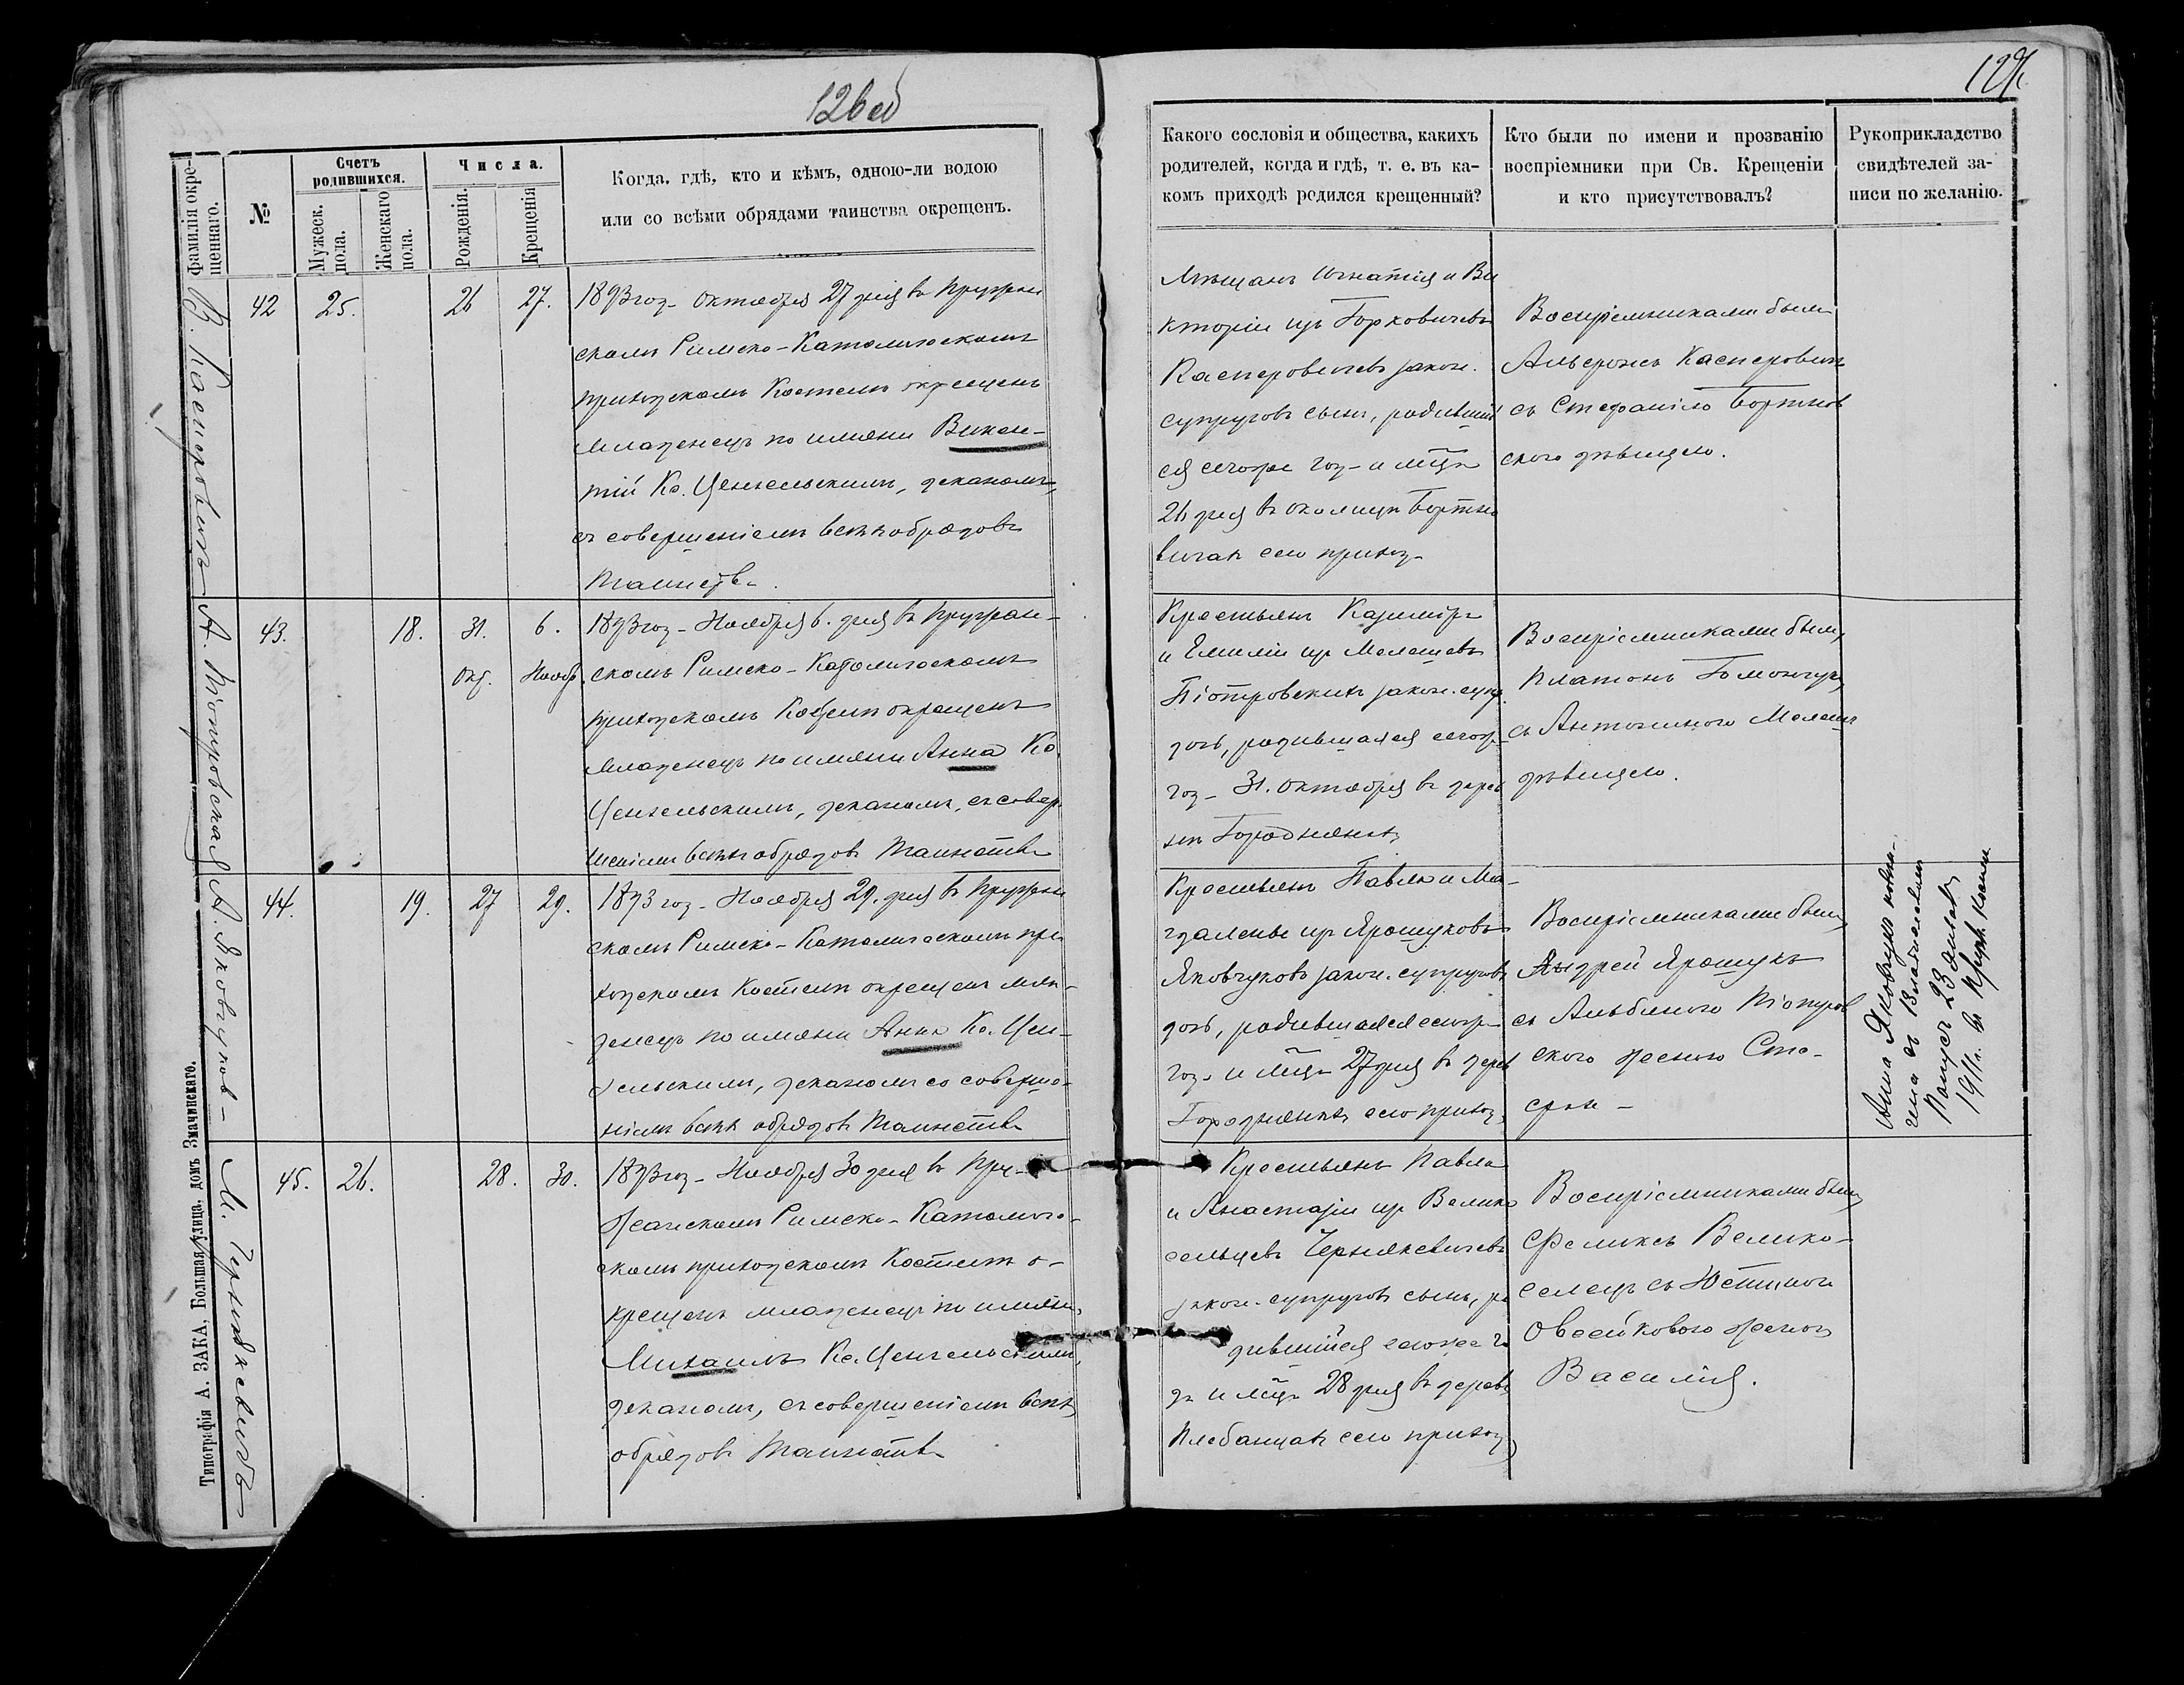 126 об
127
Фамилія окре-
щеннаго.
№
Счетъ
родившихся.
Мужеск.
пола.
Женскаго
пола.
Числа.
Рожденія.
Крещенія
Когда, гдѣ, кто и кѣмъ, одною-ли водою
или со всѣми обрядами таинства окрещенъ.
Какого сословія и общества, какихъ
родителей, когда и гдѣ, т. е. въ ка-
комъ приходѣ родился крещенный?
Кто были по имени и прозванію
воспріемники при Св. Крещеніи
и кто присутствовалъ?
Рукоприкладство
свидѣтелей за-
писи по желанію.
В. Касперовичъ
42
25.
26
27.
1893 год_ Октября 27 дня въ Пружан
скомъ Римско-Католическомъ
приходскомъ Костелѣ окрещенъ
младенецъ по имени Викен-
тій Кс. Ценгельскимъ, деканомъ,
съ совершеніемъ всѣхъ обрядовъ
таинств_.
Мѣщанъ Игнатія и Ви
кторіи изъ Горховичевъ
Касперовичевъ закон.
супруговъ сынъ, родившій
ся сегоже год_ и мца
26 дня въ околицѣ Бортно
вичах сего приход_
Воспріемниками были
Альфонсъ Касперовичъ
съ Стефаніею Бортнов
скою дѣвицею.
А. Піотровская
43.
18.
31.
Окт.
6.
Нояб.
1893 год_ Ноября 6. дня въ Пружан-
скомъ Римско-Католическомъ
приходскомъ Костелѣ окрещенъ
младенецъ по имени Анна Кс.
Ценгельскимъ, деканомъ, съ совер
шеніемъ всѣхъ обрядовъ Таинствъ
Крестьянъ Казиміра
и Емиліи изъ Мелешевъ
Піотровскихъ закон. супр.
дочь, родившаяся сегож_
год_ 31. Октября въ дерев
нѣ Городнянах
Воспріемниками были
Платонъ
съ Антониною Мелешъ
дѣвицею.
А. Яковчуков-
44.
19.
27
29.
1893 год_ Ноября 29. дня въ Пружан
скомъ Римско-Католическомъ при
ходскомъ Костелѣ окрещенъ мла-
денецъ по имени Анна Кс. Цен-
гельскимъ, деканомъ со соверше-
ніемъ всѣхъ обрядовъ Таинствъ
Крестьянъ Павла и Ма-
гдалены изъ Ярошуковъ
Яковчуковъ закон. супруговъ
дочь, родившаяся сегож_
год_ и мца 27 дня въ дерев
Городнянах сего приход
Воспріемниками были
Андрей Ярошукъ
съ Альбиною Піотров
скою женою
Анна Яковчукъ повѣн-
чена съ Владиславомъ
23 Января
1911 г. въ Пруж. Костел.
М. Чернякевичъ
45.
26.
28.
30.
1893 год_ Ноября 30 дня въ Пру-
жанскомъ Римско-Католиче-
скомъ приходскомъ Костелѣ о-
крещенъ младенецъ по имени
Михаилъ Кс. Ценгельскимъ,
деканомъ, съ совершеніемъ всѣх
обрядовъ Таинствъ
Крестьянъ Павла
и Анастазіи изъ Велико
сельцевъ Чернякевичевъ
закон. супруговъ сынъ, ро
дившійся сегоже го
да и мца 28 дня въ дерев
Плебанцах сего приход
Воспріемниками были
Феликсъ Велико-
селецъ съ Юстиною
Овсейковою женою
Василія.
Типографія А. ЗАКА, Большая улица, домъ Значинскаго.